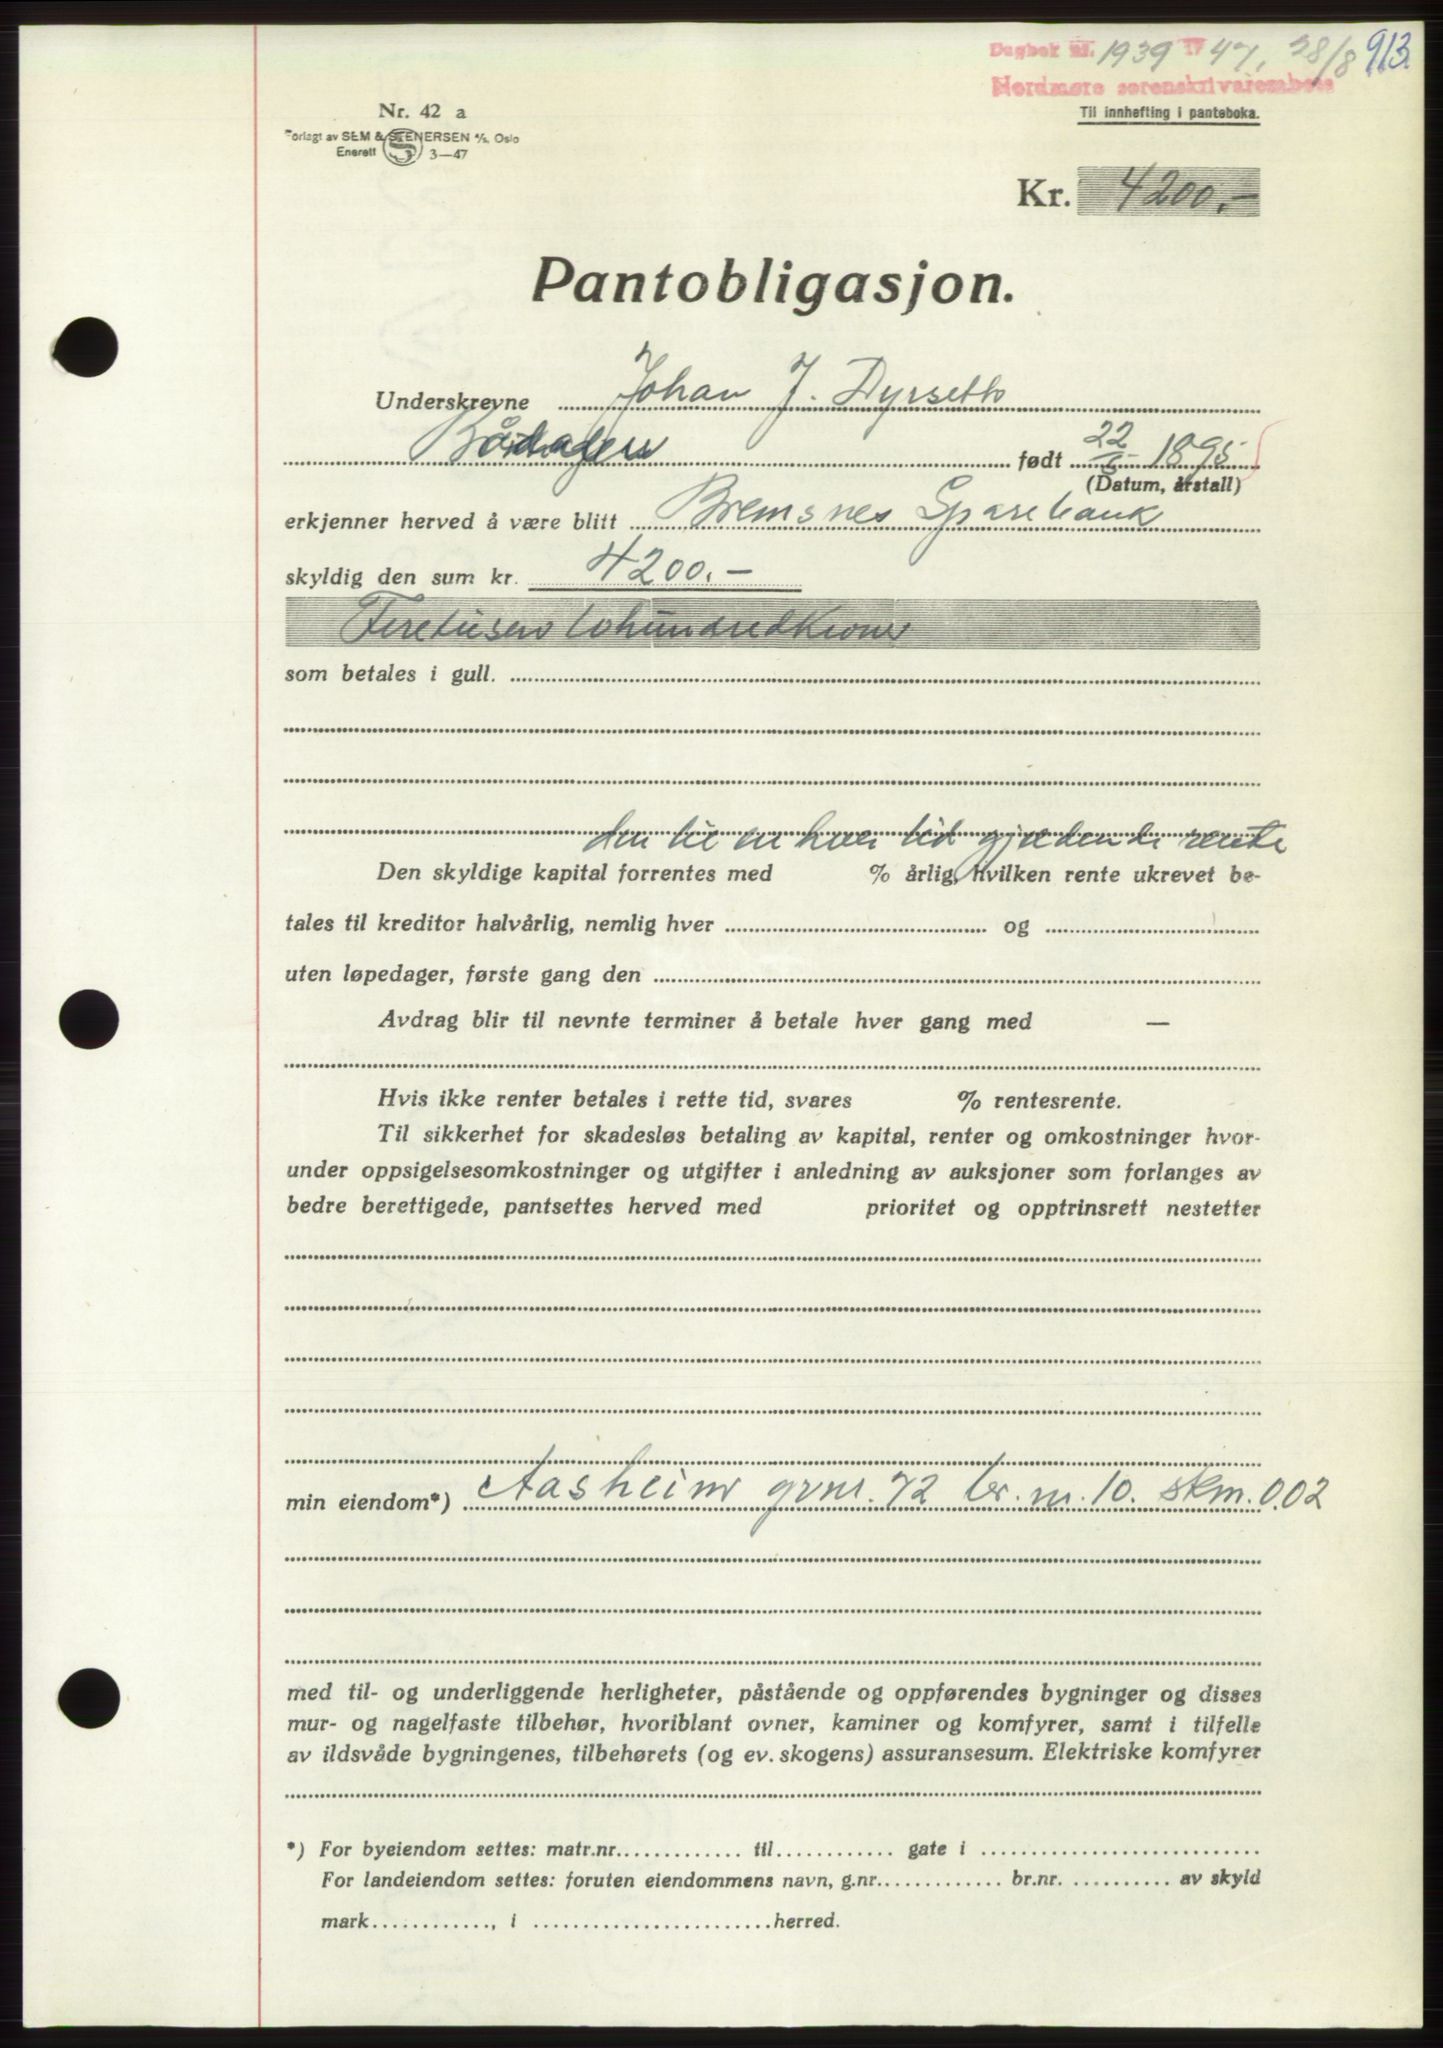 Dagbok nr. 1939 1947, 28/8 913
Nordmøre sorenskriverembete
Til innhefting i panteboka.
Nr. 42 a
Forlagt av SEM & STENERSEN A/S, Oslo
Enerett 3—47
Kr. 4200.-
Pantobligasjon.
Underskrevne Johan J. Dyrseth
født 22/ 1895
(Datum, årstall)
erkjenner herved å være blitt Bremsnes Sparebank
skyldig den sum kr. 4200.-
Firetusen tohundredkroner
som betales i gull.
den til en hver tid gjældende rente
Den skyldige kapital forrentes med % årlig, hvilken rente ukrevet be-
tales til kreditor halvårlig, nemlig hver og
uten løpedager, første gang den
Avdrag blir til nevnte terminer å betale hver gang med —
Hvis ikke renter betales i rette tid, svares % rentesrente.
Til sikkerhet for skadesløs betaling av kapital, renter og omkostninger hvor-
under oppsigelsesomkostninger og utgifter i anledning av auksjoner som forlanges av
bedre berettigede, pantsettes herved med prioritet og opptrinsrett nestetter
min eiendom*) Aasheim grnr. 72 br. nr. 10. skm. 0.02
med til- og underliggende herligheter, påstående og oppførendes bygninger og disses
mur- og nagelfaste tilbehør, hvoriblant ovner, kaminer og komfyrer, samt i tilfelle
av ildsvåde bygningenes, tilbehørets (og ev. skogens) assuransesum. Elektriske komfyrer
*) For byeiendom settes: matr.nr. til gate i
For landeiendom settes: foruten eiendommens navn, g.nr. br.nr. av skyld
mark , i herred.